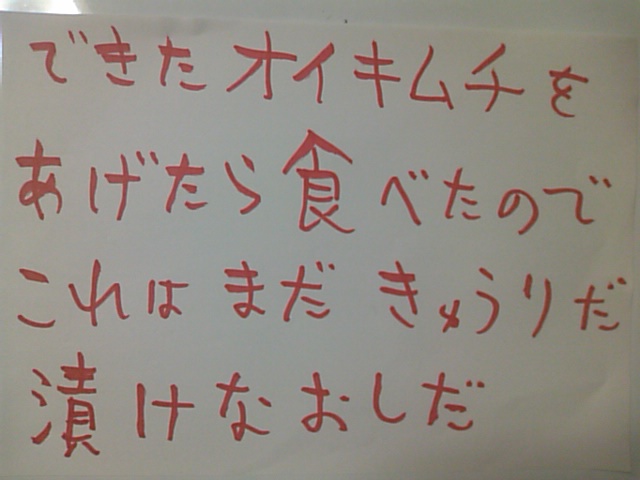 できたオイキムチを
あげたら食べたので
これはまだきゅうりだ
漬けなおしだ